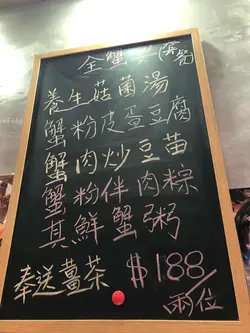 全蟹宴(隔籠)
養生菇菌湯
蟹粉皮蛋豆腐
蟹肉炒豆苗
蟹粉伴肉粽
其鮮蟹粥
奉送薑茶 $188/兩位